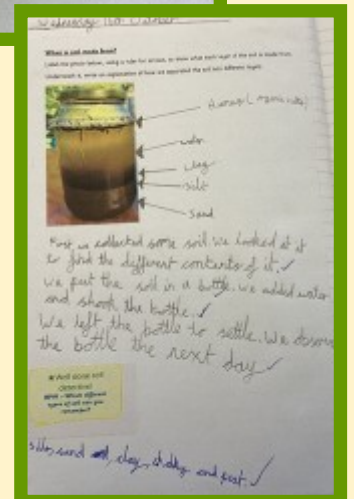 Wednesday 16th October
What is soil made from?
Label the photo below, using a ruler for arrows, to show what each layer of the soil is made from.
Underneath it, write an explanation of how we separated the soil into different layers.
(organic matter)
water
clay
silt
sand
First, we collected some soil. we looked at it
to find the different contents of it. ✓
we put the soil in a bottle. we added water
and shook the bottle. ✓
We left the bottle to settle. We observe
the bottle the next day ✓
Well done soil
detective!
different
types of soil can you
remember?
sand clay, chalky and peat. ✓